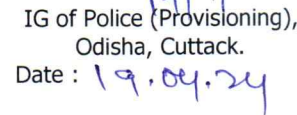 IG of Police (Provisioning),
Odisha, Cuttack.
Date : 19.04.24